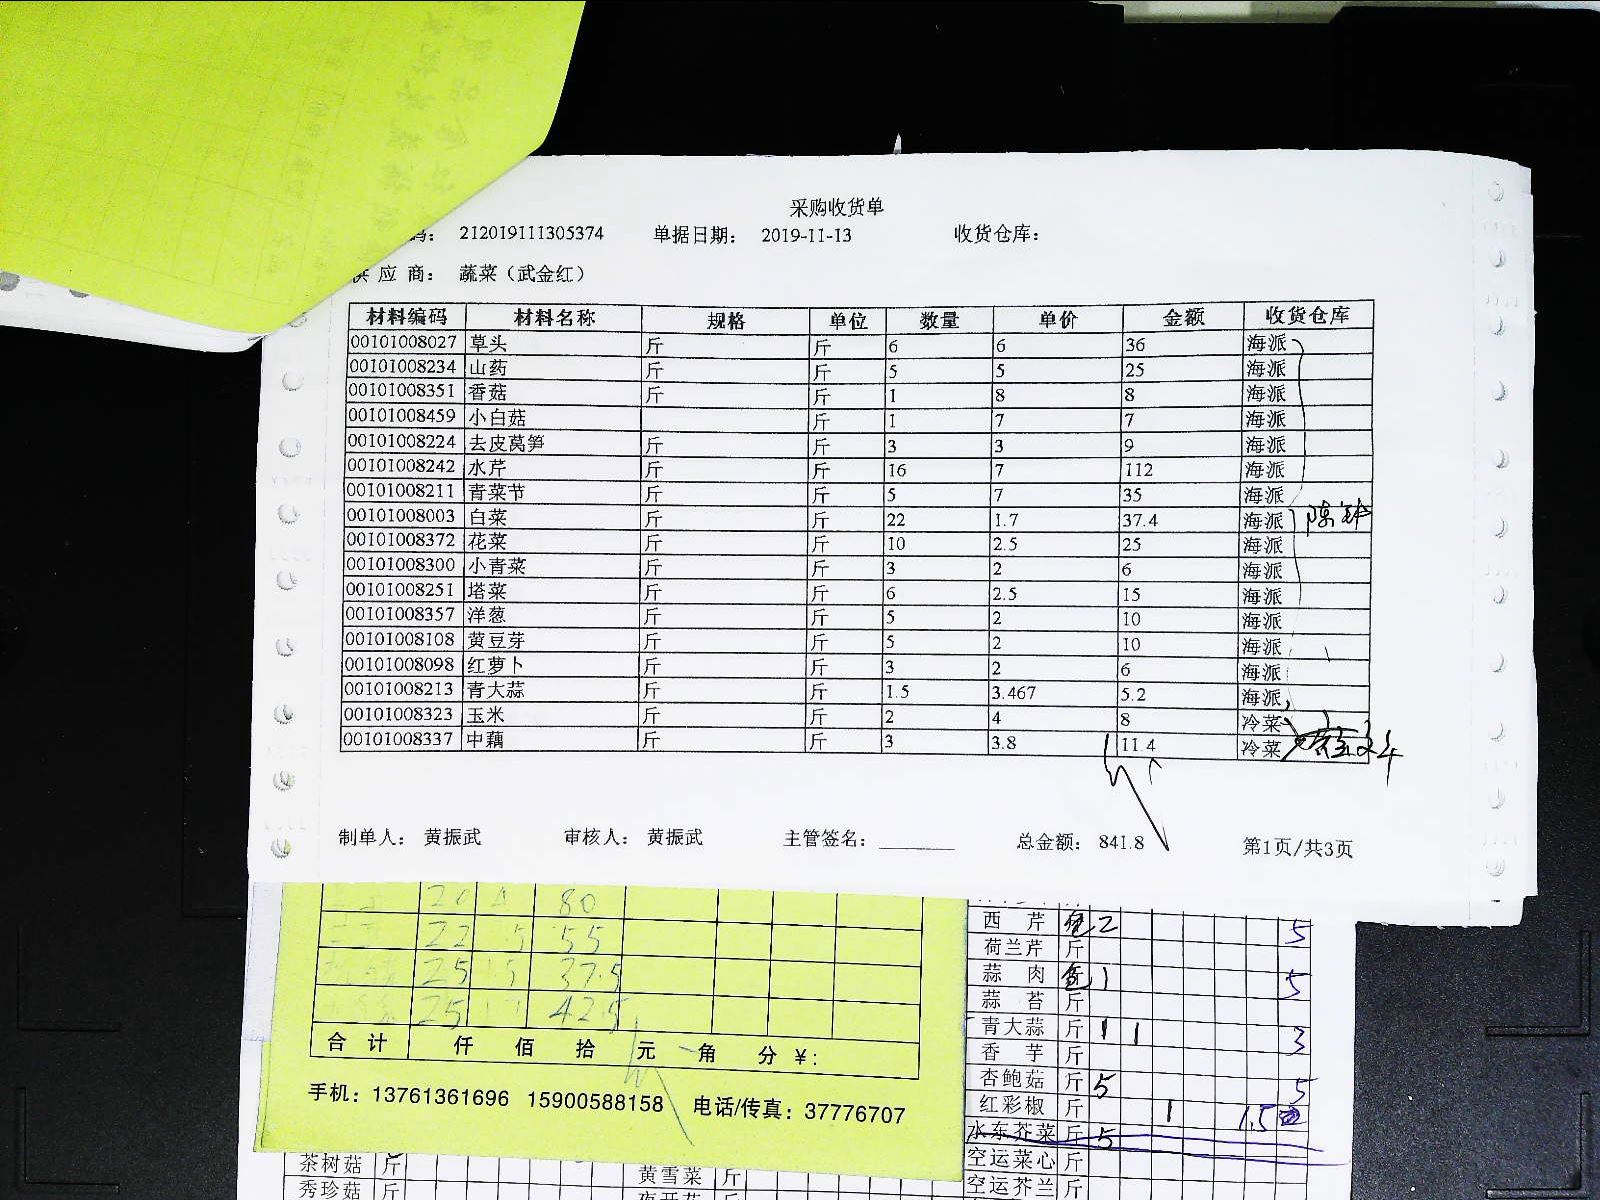 采购收货单
码： 212019111305374 单据日期： 2019-11-13 收货仓库：
供 应 商： 蔬菜（武金红）
材料编码 材料名称 规格 单位 数量 单价 金额 收货仓库
00101008027 草头 斤 斤 6 6 36 海派
00101008234 山药 斤 斤 5 5 25 海派
00101008351 香菇 斤 斤 1 8 8 海派
00101008459 小白菇 斤 1 7 7 海派
00101008224 去皮莴笋 斤 斤 3 3 9 海派
00101008242 水芹 斤 斤 16 7 112 海派
00101008211 青菜节 斤 斤 5 7 35 海派
00101008003 白菜 斤 斤 22 1.7 37.4 海派
00101008372 花菜 斤 斤 10 2.5 25 海派
00101008300 小青菜 斤 斤 3 2 6 海派
00101008251 塔菜 斤 斤 6 2.5 15 海派
00101008357 洋葱 斤 斤 5 2 10 海派
00101008108 黄豆芽 斤 斤 5 2 10 海派
00101008098 红萝卜 斤 斤 3 2 6 海派
00101008213 青大蒜 斤 斤 1.5 3.467 5.2 海派
00101008323 玉米 斤 斤 2 4 8 冷菜
00101008337 中藕 斤 斤 3 3.8 11.4 冷菜
制单人： 黄振武 审核人： 黄振武 主管签名： 总金额： 841.8 第1页/共3页
80
22 5 55
25 15 37.5
25 17 42.5
合 计 仟 佰 拾 元 角 分 ¥：
手机：13761361696 15900588158 电话/传真：37776707
西 芹 包 2 5
荷兰芹 斤
蒜 肉 包 1 5
蒜 苔 斤
青大蒜 斤 1 1 3
香 芋 斤
杏鲍菇 斤 5 5
红彩椒 斤 1 1.5
水东芥菜 斤 5
空运菜心 斤
空运芥兰 斤
茶树菇 斤
秀珍菇 斤
黄雪菜 斤